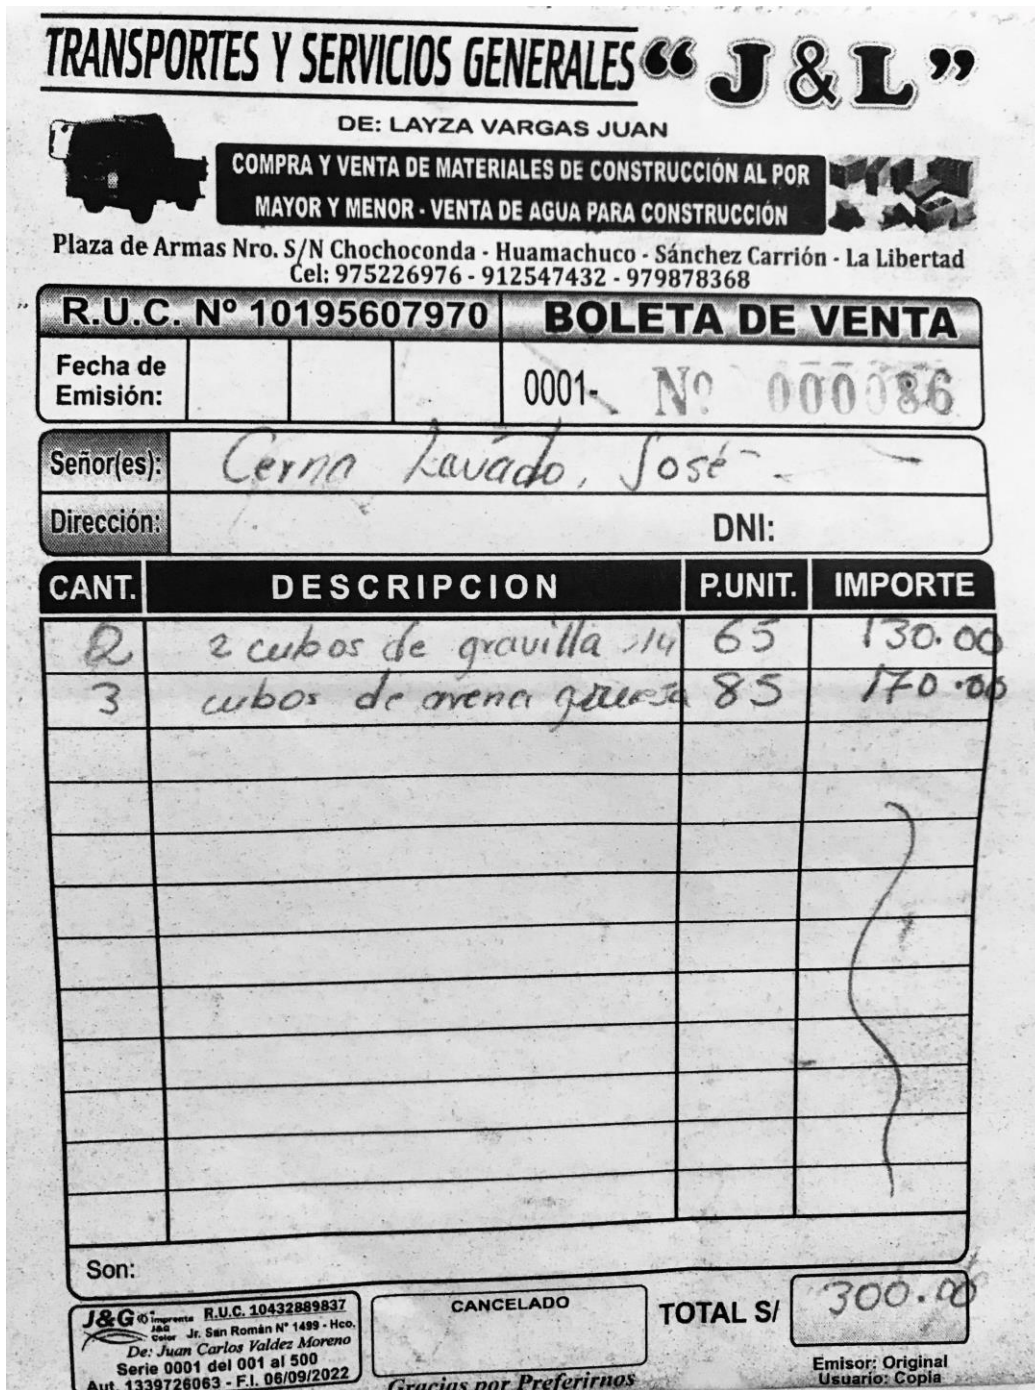 TRANSPORTES Y SERVICIOS GENERALES “J & L”
DE: LAYZA VARGAS JUAN
COMPRA Y VENTA DE MATERIALES DE CONSTRUCCIÓN AL POR
MAYOR Y MENOR - VENTA DE AGUA PARA CONSTRUCCIÓN
Plaza de Armas Nro. S/N Chochoconda - Huamachuco - Sánchez Carrión - La Libertad
Cel: 975226976 - 912547432 - 979878368
R.U.C. Nº 10195607970 BOLETA DE VENTA
Fecha de
Emisión:
0001- Nº 000086
Señor(es): Cerna Lavado, José
Dirección: DNI:
CANT. DESCRIPCION P.UNIT. IMPORTE
2 2 cubos de gravilla 65 130.00
3 cubos de arena gruesa 85 170.00
Son:
J&G Imprenta R.U.C. 10432889837
J&G Color Jr. San Román Nº 1499 - Hco.
De: Juan Carlos Valdez Moreno
Serie 0001 del 001 al 500
Aut. 1339726063 - F.I. 06/09/2022
CANCELADO
Gracias por Preferirnos
TOTAL S/ 300.00
Emisor: Original
Usuario: Copia